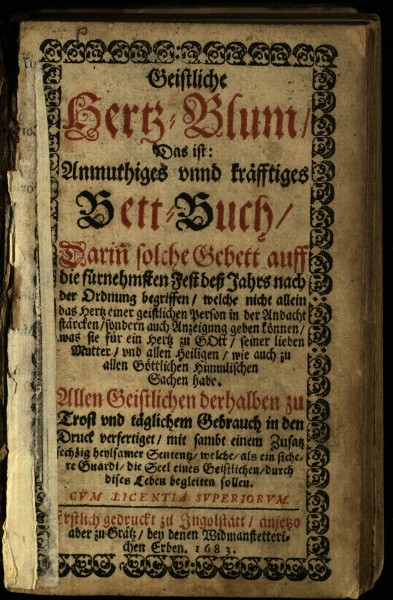 Geistliche
Hertz-Blum/
Das ist:
Anmuthiges vnnd kräfftiges
Bett-Buch/
Darin̄ solche Gebett auff
die fürnehmsten Fest deß Jahrs nach
der Ordnung begriffen/ welche nicht allein
das Hertz einer geistlichen Person in der Andacht
stärcken/ sondern auch Anzeigung geben können/
was sie für ein Hertz zu GOtt/ seiner lieben
Mutter/ vnd allen Heiligen/ wie auch zu
allen Göttlichen Himmlischen
Sachen habe.
Allen Geistlichen derhalben zu
Trost vnd täglichem Gebrauch in den
Druck verfertiget/ mit sambt einem Zusatz
sechzig heylsamer Sententz/ welche/ als ein siche-
re Guardi/ die Seel eines Geistlichen/ durch
dises Leben begleiten sollen.
CVM LICENTIA SVPERIORVM.
Erstlich gedruckt zu Ingolstatt/ anjetzo
aber zu Grätz/ bey denen Widmanstetteri-
chen Erben. 1683.